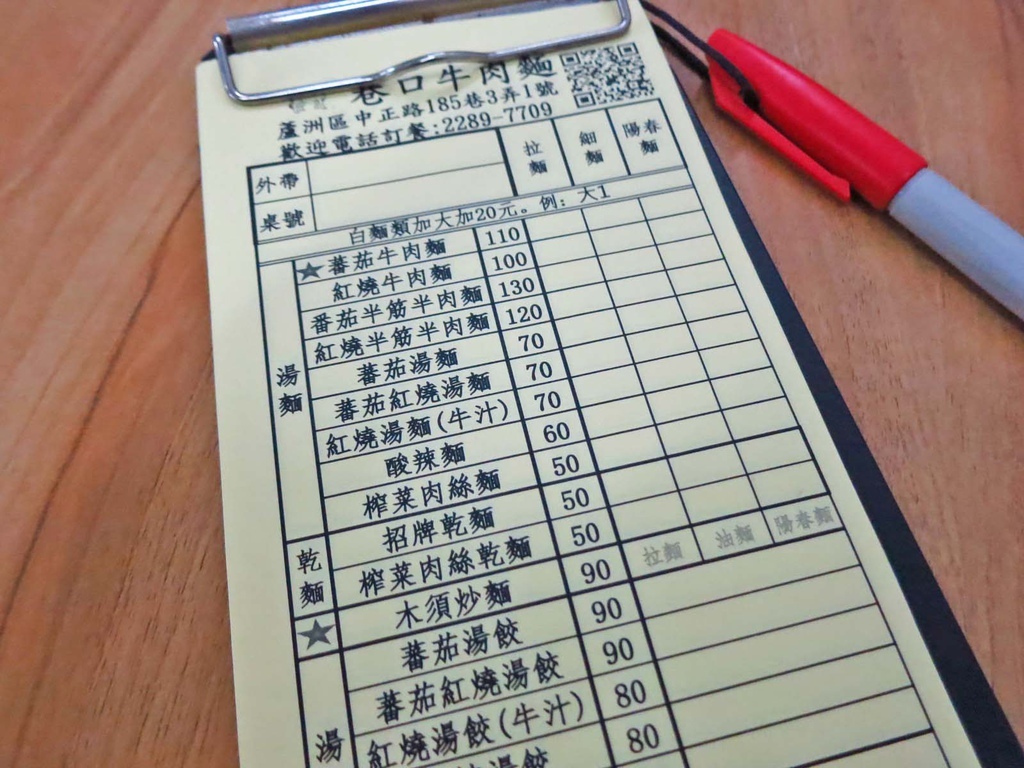 巷口牛肉麵
蘆洲區中正路185巷3弄1號
歡迎電話訂餐:2289-7709
外帶
桌號
拉麵 細麵 陽春麵
白麵類加大加20元。例：大1
湯麵
★蕃茄牛肉麵 110
紅燒牛肉麵 100
番茄半筋半肉麵 130
紅燒半筋半肉麵 120
蕃茄湯麵 70
蕃茄紅燒湯麵 70
紅燒湯麵(牛汁) 70
酸辣麵 60
榨菜肉絲麵 50
乾麵
招牌乾麵 50
榨菜肉絲乾麵 50
★ 木須炒麵 90 拉麵 油麵 陽春麵
湯
蕃茄湯餃 90
蕃茄紅燒湯餃 90
紅燒湯餃(牛汁) 80
湯餃 80